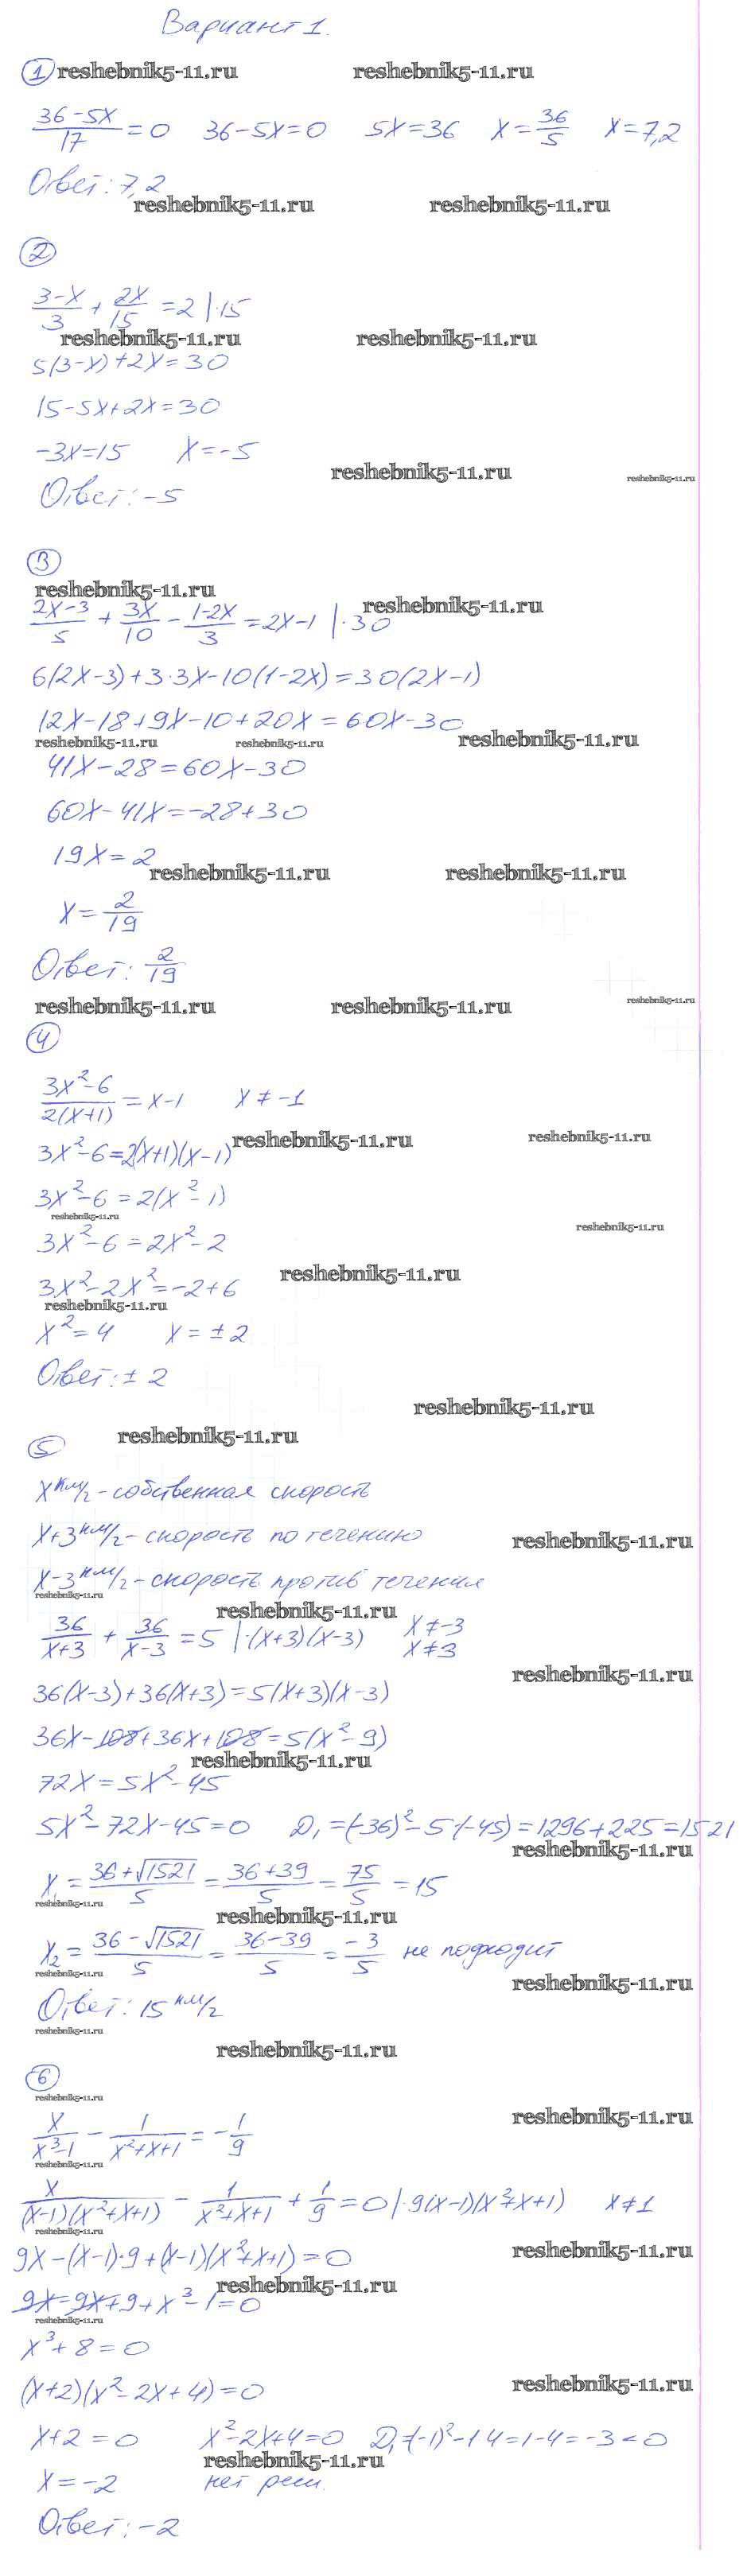 Вариант 1.
① reshebnik5-11.ru reshebnik5-11.ru
(36-5x)/17 = 0 36-5x=0 5x=36 x=36/5 x=7,2
Ответ: 7,2
reshebnik5-11.ru reshebnik5-11.ru
②
(3-x)/3 + 2x/15 = 2 |·15
reshebnik5-11.ru reshebnik5-11.ru
5(3-x)+2x=30
15-5x+2x=30
-3x=15 x=-5
reshebnik5-11.ru reshebnik5-11.ru
Ответ: -5
③
reshebnik5-11.ru reshebnik5-11.ru
(2x-3)/5 + 3x/10 - (1-2x)/3 = 2x-1 |·30
6(2x-3)+3·3x-10(1-2x)=30(2x-1)
12x-18+9x-10+20x=60x-30
reshebnik5-11.ru reshebnik5-11.ru reshebnik5-11.ru
41x-28=60x-30
60x-41x=-28+30
19x=2
reshebnik5-11.ru reshebnik5-11.ru
x=2/19
Ответ: 2/19
reshebnik5-11.ru reshebnik5-11.ru reshebnik5-11.ru
④
(3x²-6)/(2(x+1)) = x-1 x≠-1
3x²-6=2(x+1)(x-1) reshebnik5-11.ru reshebnik5-11.ru
3x²-6=2(x²-1)
reshebnik5-11.ru reshebnik5-11.ru
3x²-6=2x²-2
3x²-2x²=-2+6 reshebnik5-11.ru
reshebnik5-11.ru
x²=4 x=±2
Ответ: ±2
reshebnik5-11.ru
⑤ reshebnik5-11.ru
x км/г - собственная скорость
x+3 км/г - скорость по течению reshebnik5-11.ru
x-3 км/г - скорость против течения
reshebnik5-11.ru reshebnik5-11.ru
36/(x+3) + 36/(x-3) = 5 |·(x+3)(x-3) x≠-3 x≠3
reshebnik5-11.ru
36(x-3)+36(x+3)=5(x+3)(x-3)
36x-108+36x+108=5(x²-9)
reshebnik5-11.ru
72x=5x²-45
5x²-72x-45=0 D₁=(-36)²-5·(-45)=1296+225=1521
reshebnik5-11.ru
x₁=(36+√1521)/5=(36+39)/5=75/5=15
reshebnik5-11.ru reshebnik5-11.ru
x₂=(36-√1521)/5=(36-39)/5=-3/5 не подходит
reshebnik5-11.ru reshebnik5-11.ru
Ответ: 15 км/г
reshebnik5-11.ru reshebnik5-11.ru
⑥
reshebnik5-11.ru reshebnik5-11.ru
x/(x³-1) - 1/(x²+x+1) = -1/9
reshebnik5-11.ru
x/((x-1)(x²+x+1)) - 1/(x²+x+1) + 1/9 = 0 |·9(x-1)(x²+x+1) x≠1
reshebnik5-11.ru reshebnik5-11.ru
9x-(x-1)·9+(x-1)(x²+x+1)=0
reshebnik5-11.ru
9x-9x+9+x³-1=0
reshebnik5-11.ru
x³+8=0
(x+2)(x²-2x+4)=0 reshebnik5-11.ru
x+2=0 x²-2x+4=0 D₁=(-1)²-1·4=1-4=-3<0
reshebnik5-11.ru
x=-2 нет реш.
Ответ: -2